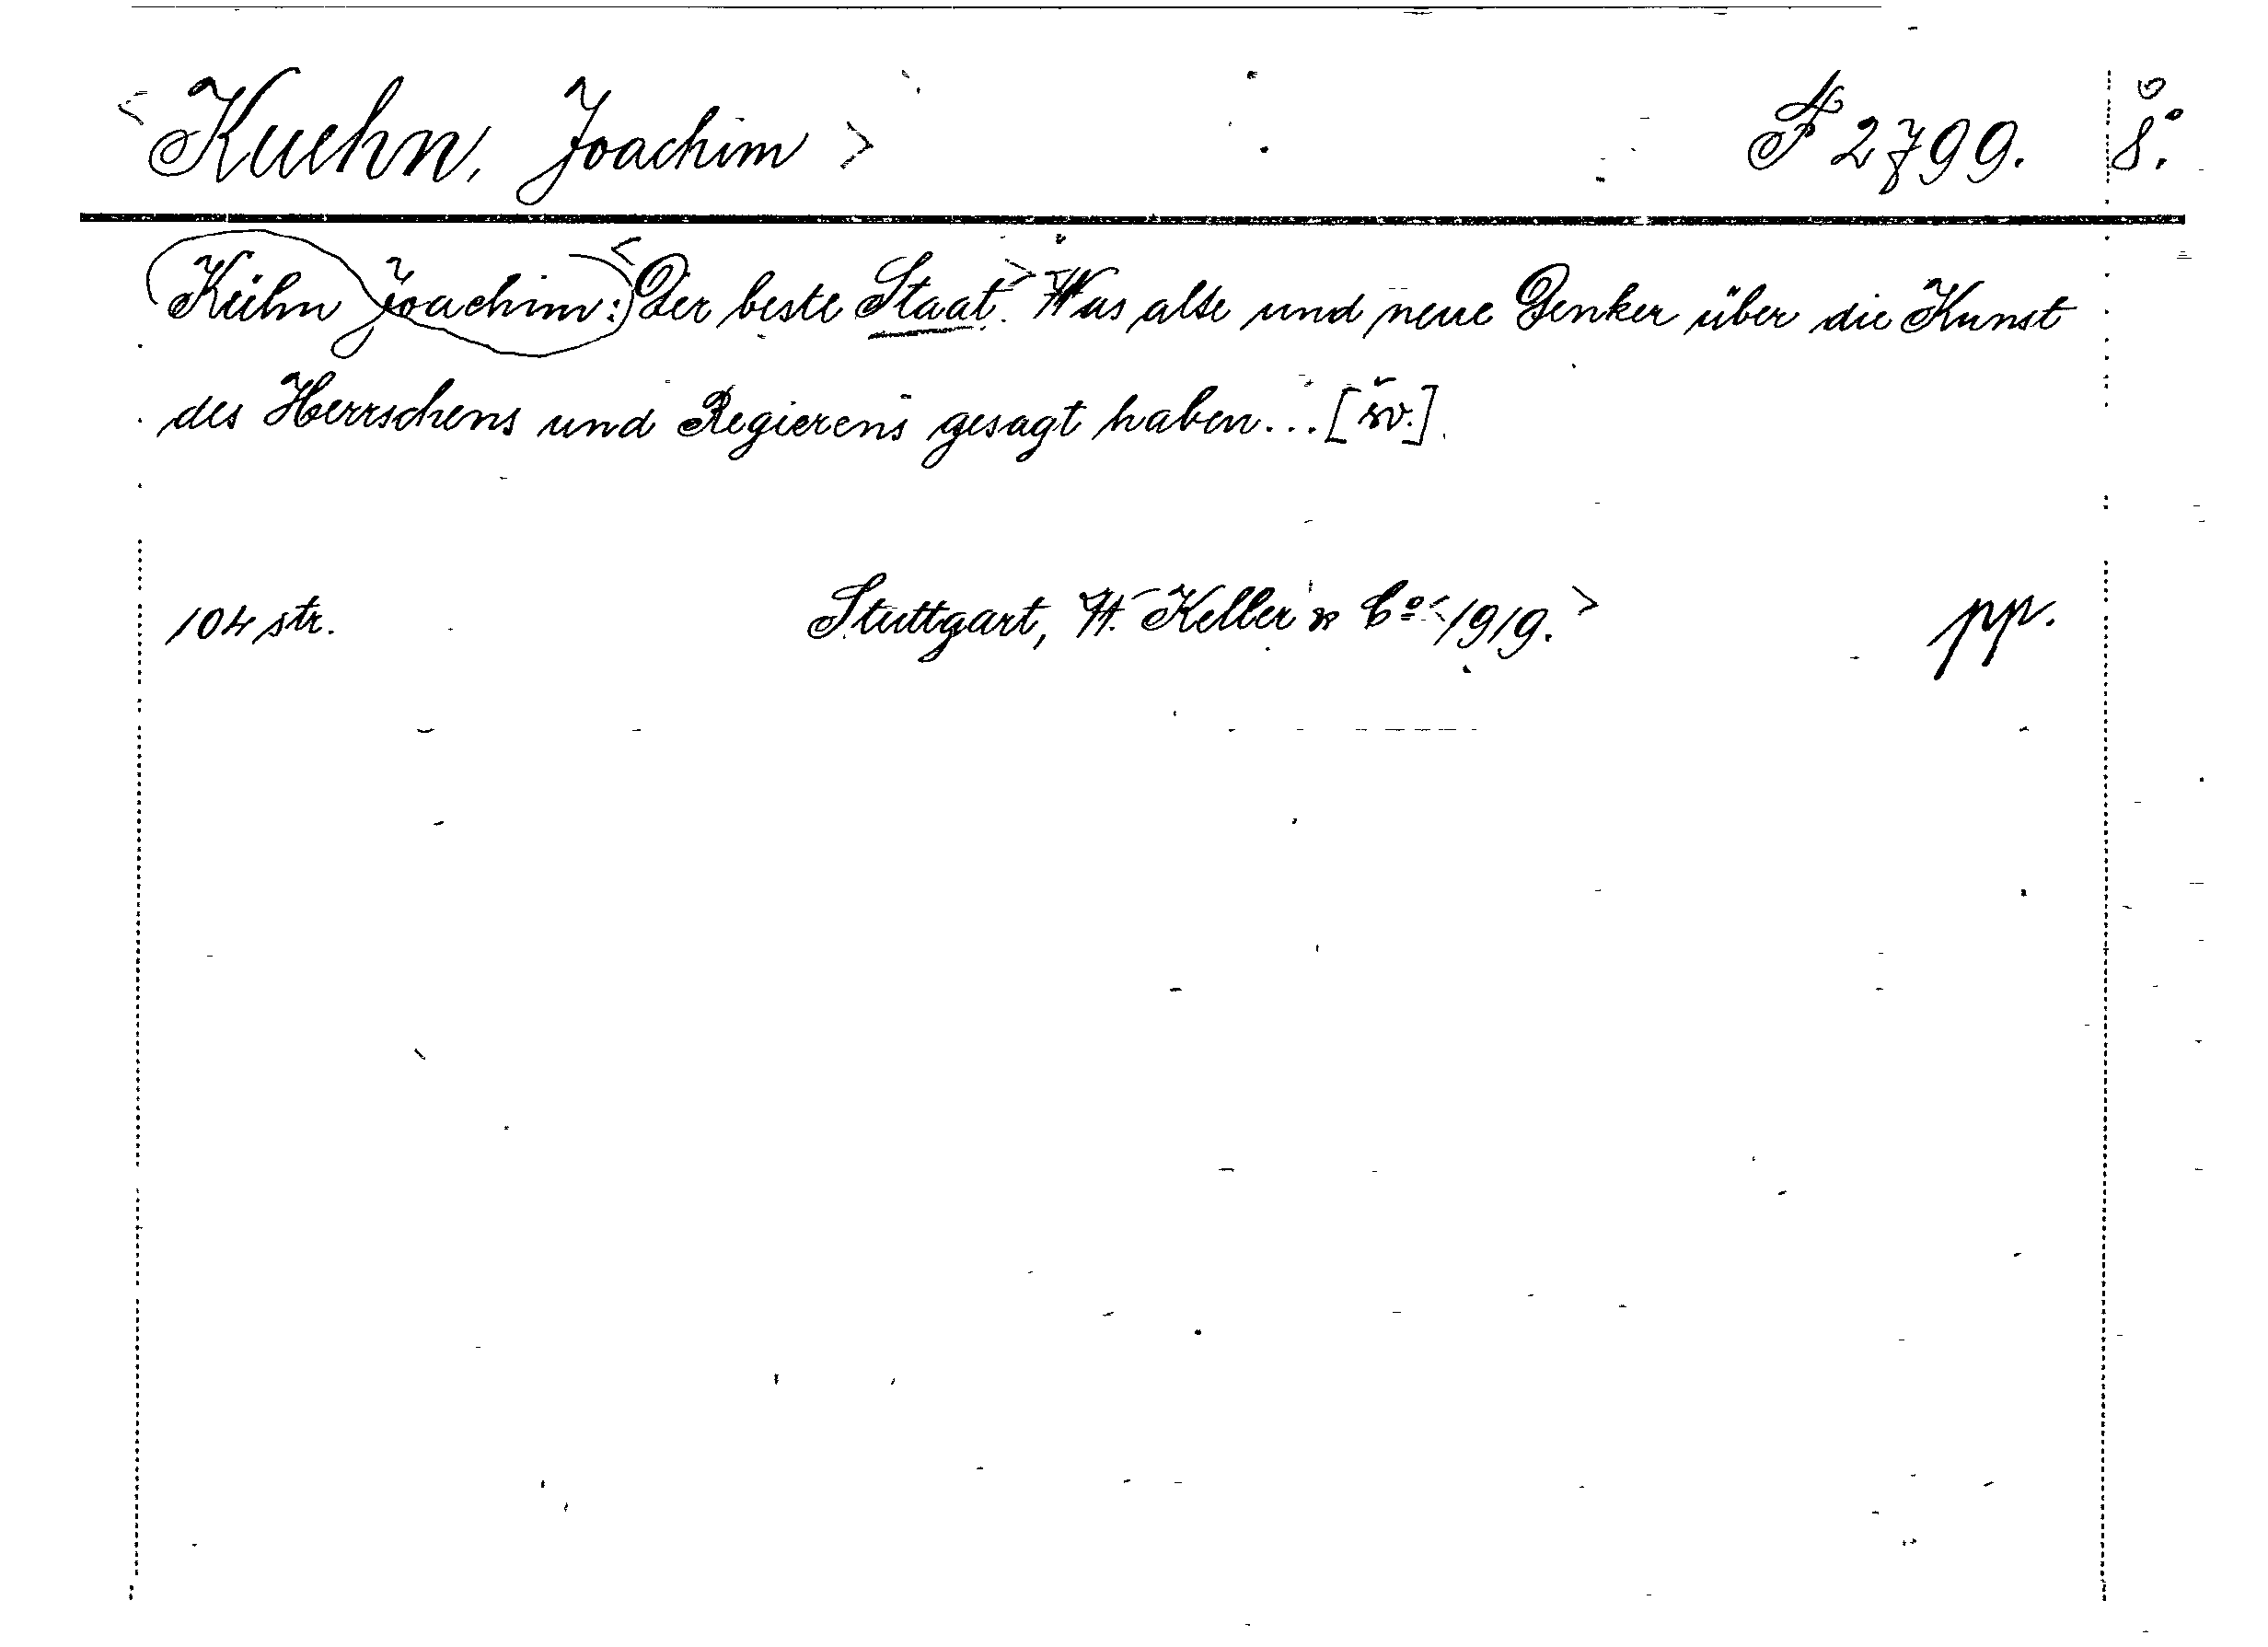 <Kuehn, Joachim> F 2799. 8°.
Kühn Joachim: <Der beste Staat.> Was alte und neue Denker über die Kunst
des Herrschens und Regierens gesagt haben... [sv.]
104 str. Stuttgart, W. Keller & Co <1919.> pp.